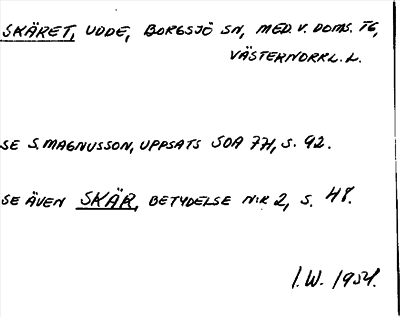 SKÄRET, UDDE, BORGSJÖ SN, MED. V. DOMS. TG,
VÄSTERNORRL. L.
SE S. MAGNUSSON, UPPSATS SOA 771, S. 92.
SE ÄVEN SKÄR, BETYDELSE N:R 2, S. 48.
I.W. 1954.